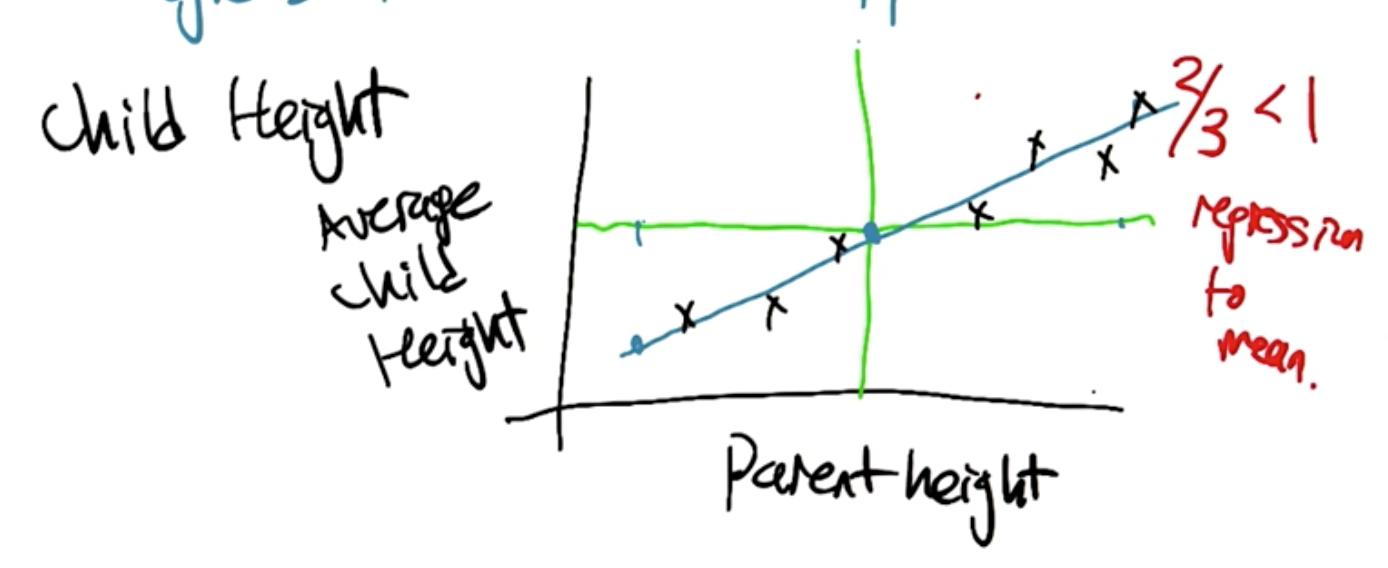 Child Height
Average
Child
Height
2/3 < 1
regression
to
mean.
Parent height